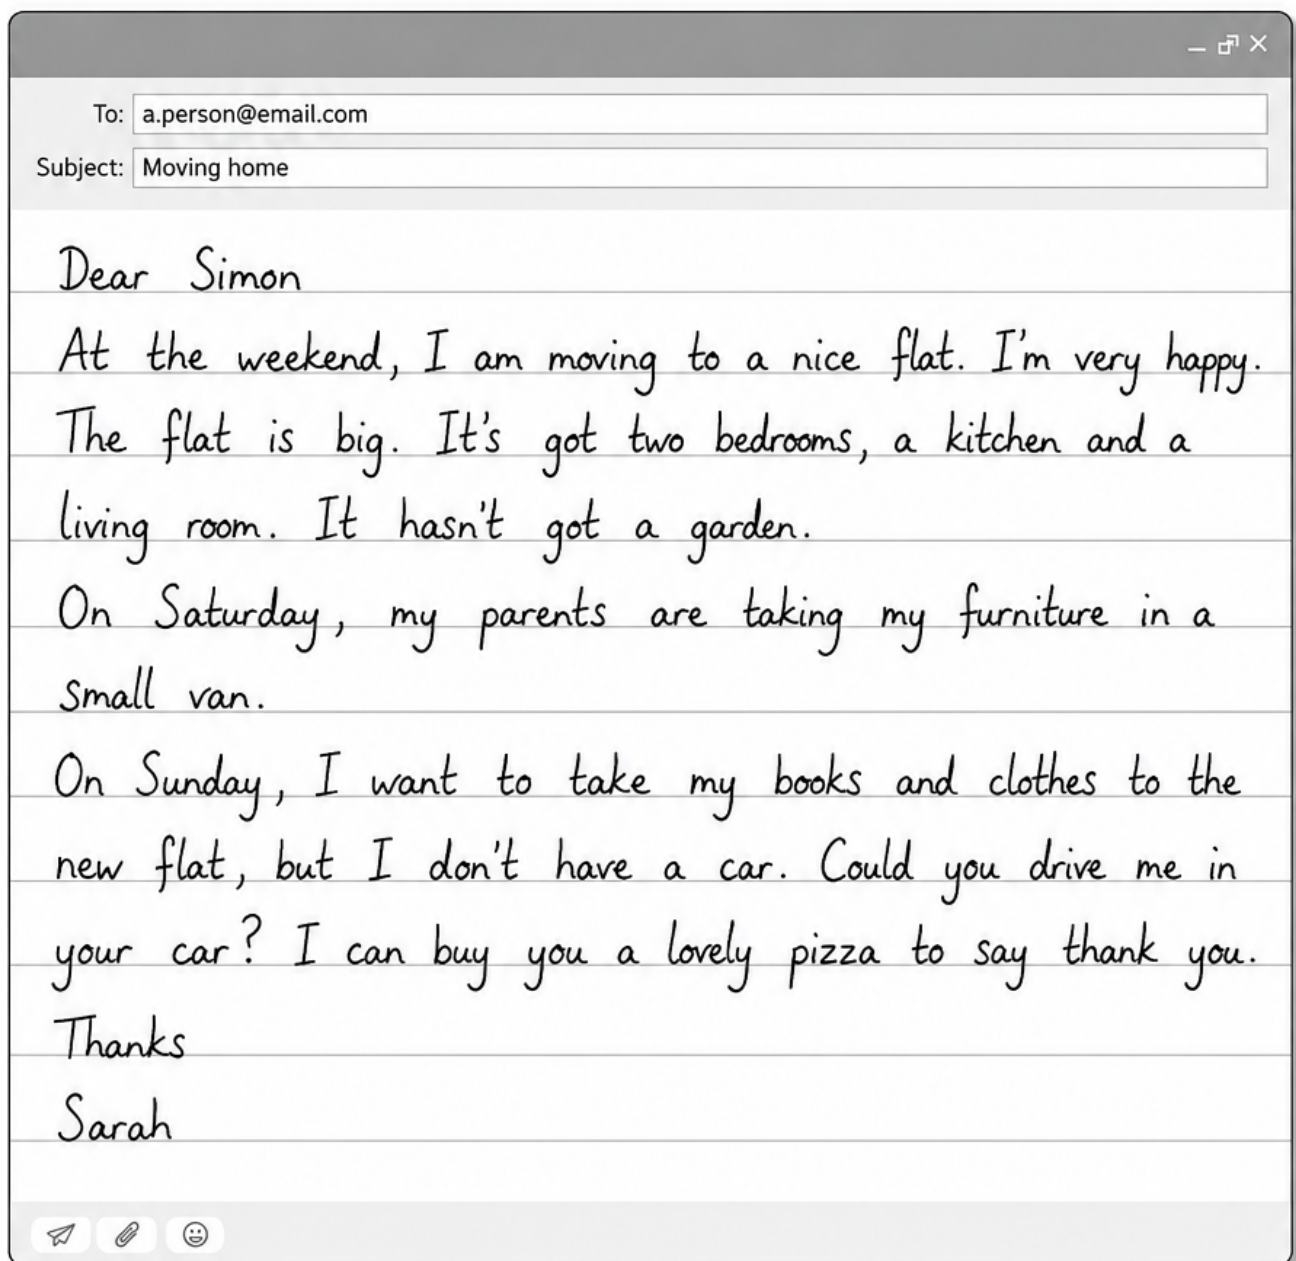 To: a.person@email.com
Subject: Moving home
Dear Simon
At the weekend, I am moving to a nice flat. I'm very happy.
The flat is big. It's got two bedrooms, a kitchen and a
living room. It hasn't got a garden.
On Saturday, my parents are taking my furniture in a
small van.
On Sunday, I want to take my books and clothes to the
new flat, but I don't have a car. Could you drive me in
your car? I can buy you a lovely pizza to say thank you.
Thanks
Sarah